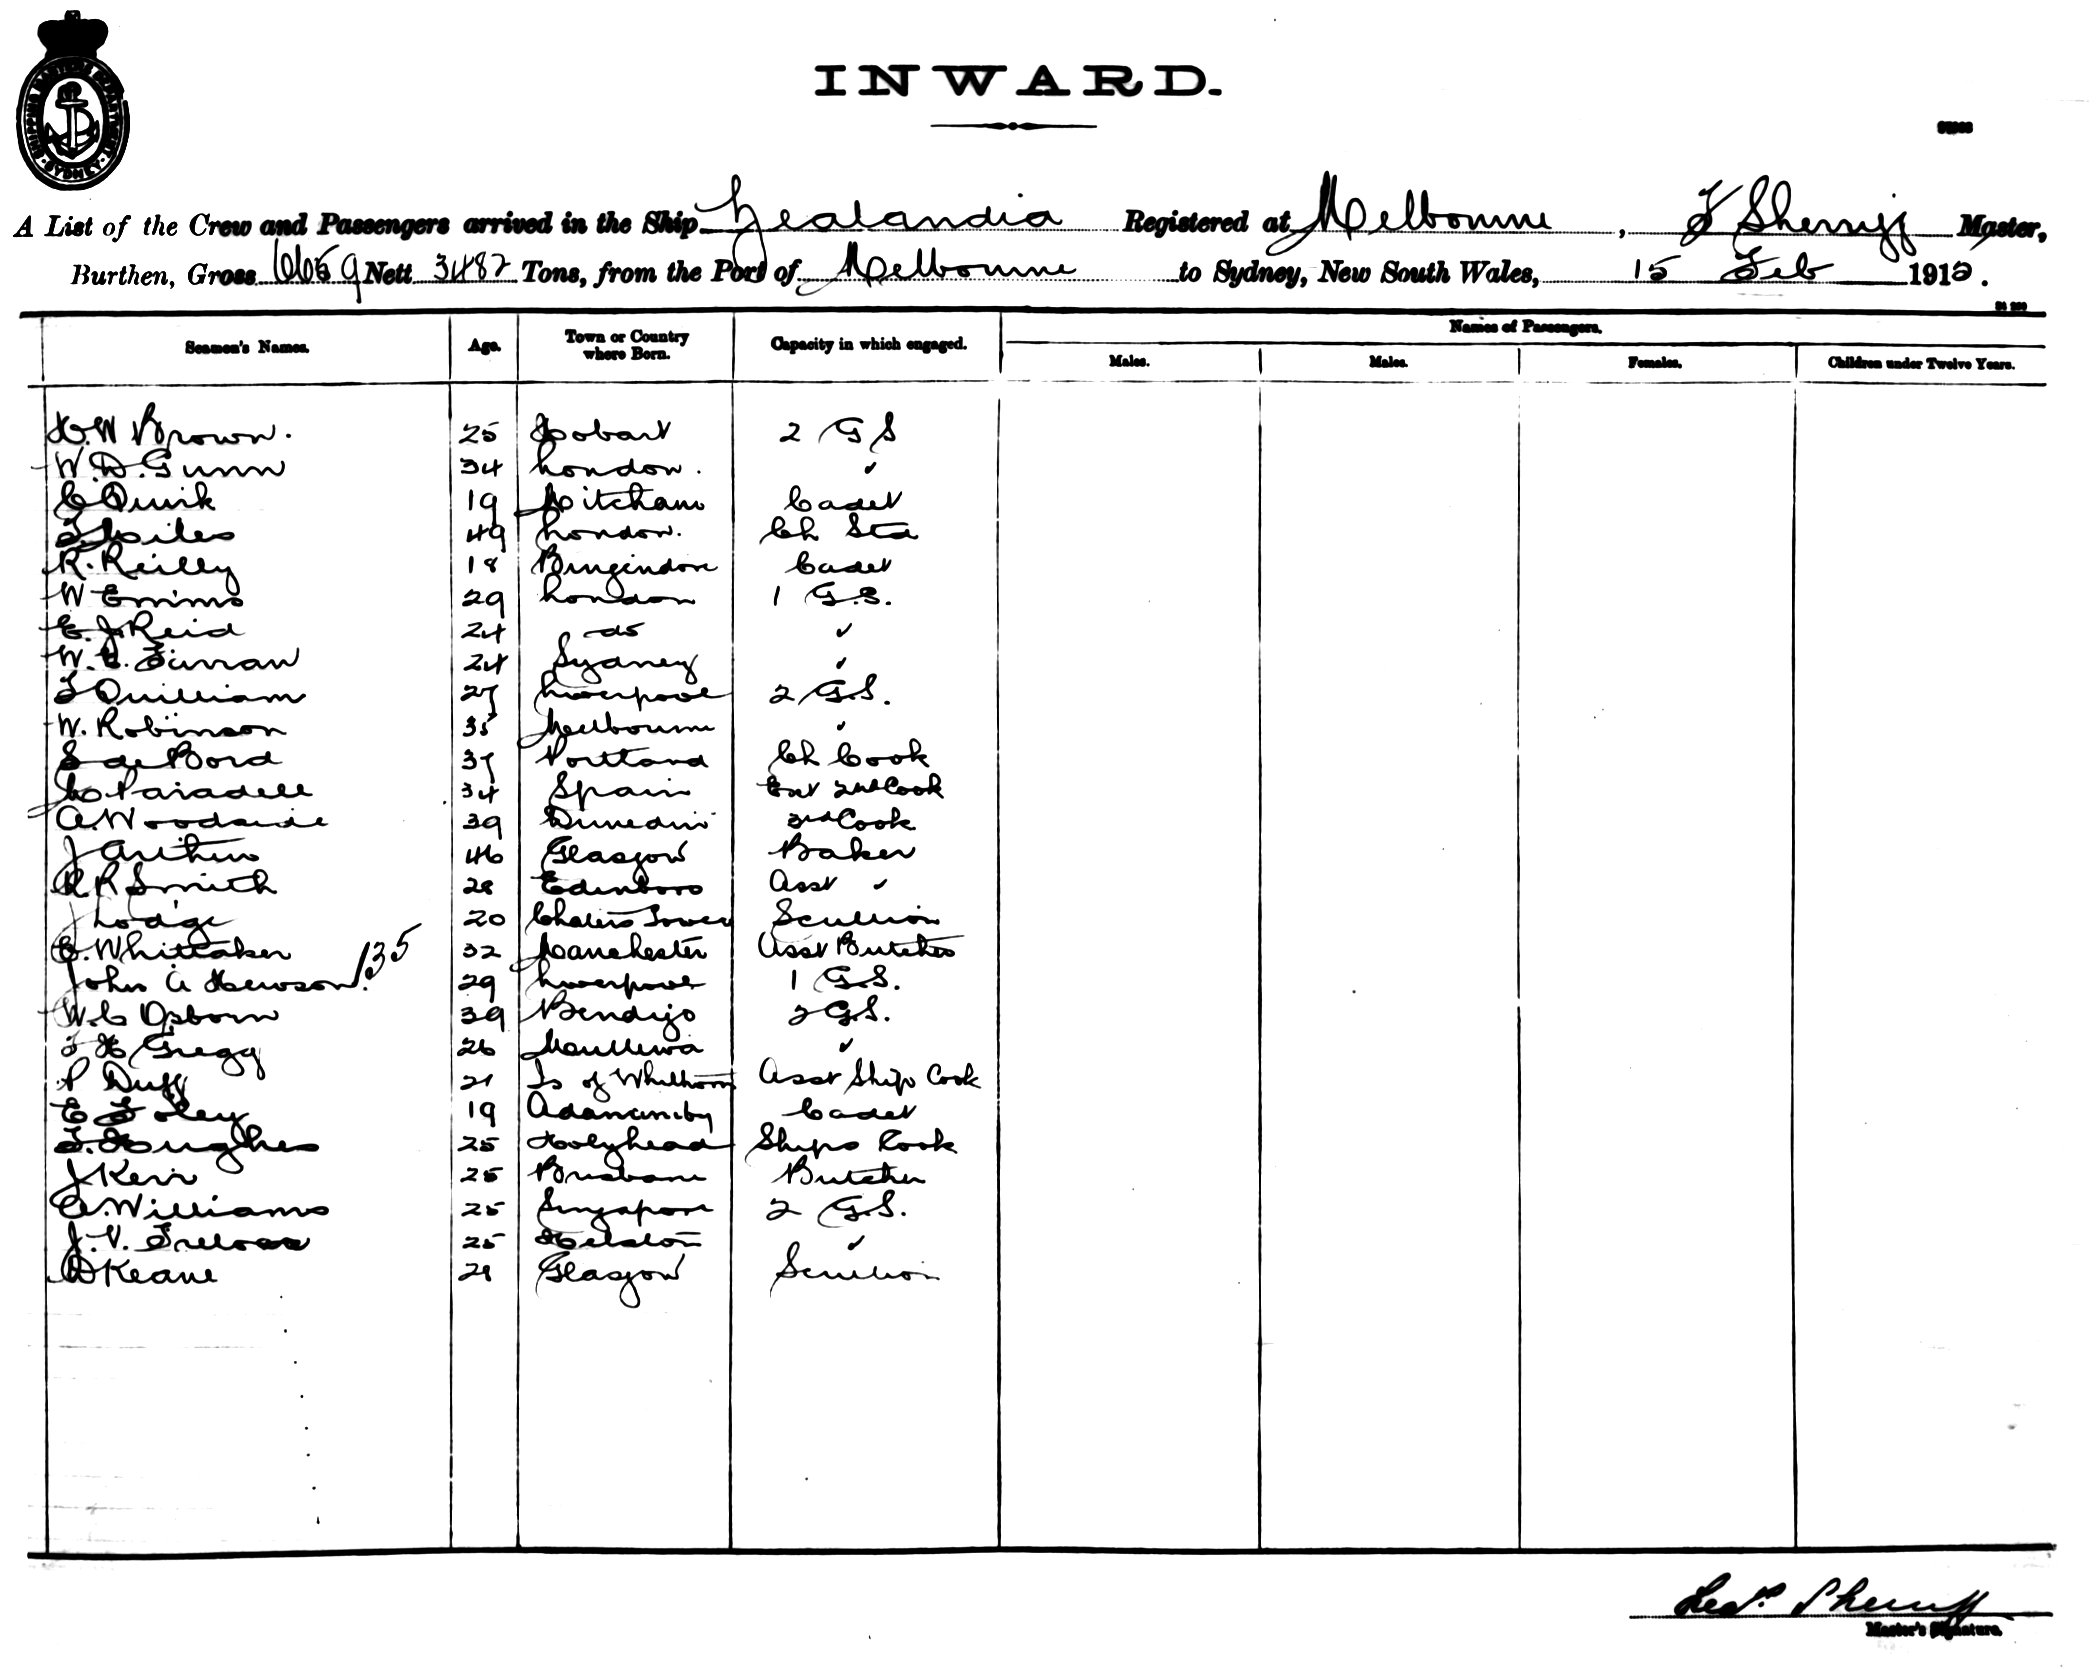 SHIPPING MASTER'S DEPARTMENT · SYDNEY ·
INWARD.
A List of the Crew and Passengers arrived in the Ship Zealandia Registered at Melbourne, F Sherriff Master,
Burthen, Gross 6659 Nett 3482 Tons, from the Port of Melbourne to Sydney, New South Wales, 15 Feb 1912.
Names of Passengers.
Seamen's Names. Age. Town or Country where Born. Capacity in which engaged. Males. Males. Females. Children under Twelve Years.
H.W Brown. 25 Hobart 2 G S
W.D.Gunn 34 London. ✓
C Quirk 19 Mitcham Cadet
F Miles 49 London. Ch Std
R. Reilly 18 Bungendore Cadet
W Emms 29 London 1 G.S.
E. J Reid 24 do ✓
W. E. Firran 24 Sydney ✓
F Quilliam 27 Liverpool 2 G.S.
W. Robinson 35 Melbourne ✓
S de Bord 37 Portland Ch Cook
M Paradell 34 Spain Ext 2nd Cook
A. Woodside 39 Dunedin 3rd Cook
J Arthur 46 Glasgow Baker
R R Smith 28 Edinboro Asst ✓
J Lodge 20 Charters Towers Scullion
C. Whittaker 32 Manchester Asst Butcher
John A Hewson. 135 29 Liverpool 1 G.S.
W. C Osborn 39 Bendigo 2 G.S.
F H Gregg 26 Mullewa ✓
P Duff 21 Is of Whithorn Asst Ship Cook
E Foley 19 Adaminiby Cadet
F. Hughes 25 Holyhead Ships Cook
J Kerr 25 Brisbane Butcher
A. Williams 25 Singapore 2 G.S.
J. V. 25 Helston ✓
D Keane 21 Glasgow Scullion
Sherriff
Master's Signature.